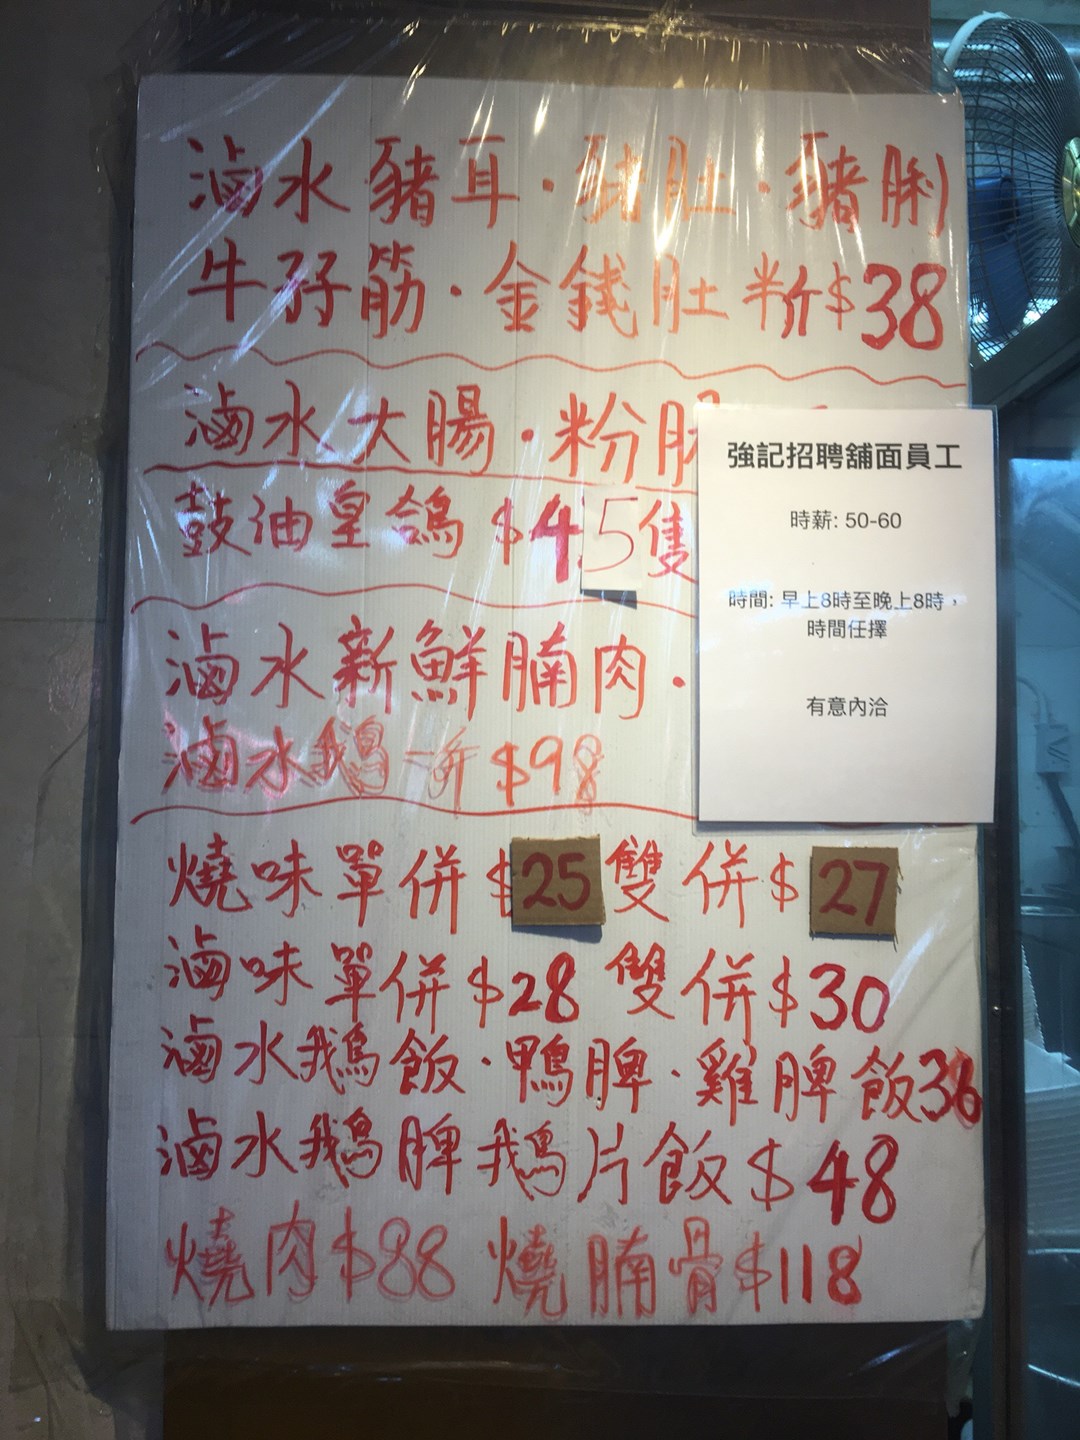 滷水豬耳·豬肚·豬脷
牛孖筋·金錢肚 半斤$38
滷水大腸·粉腸
鼓油皇鴿 $45隻
滷水新鮮腩肉·
滷水鵝一斤 $98
燒味單併$25雙併$27
滷味單併$28雙併$30
滷水鵝飯·鴨脾·雞脾飯36
滷水鵝脾鵝片飯$48
燒肉$88 燒腩骨$118
強記招聘舖面員工
時薪: 50-60
時間: 早上8時至晚上8時，
時間任擇
有意內洽